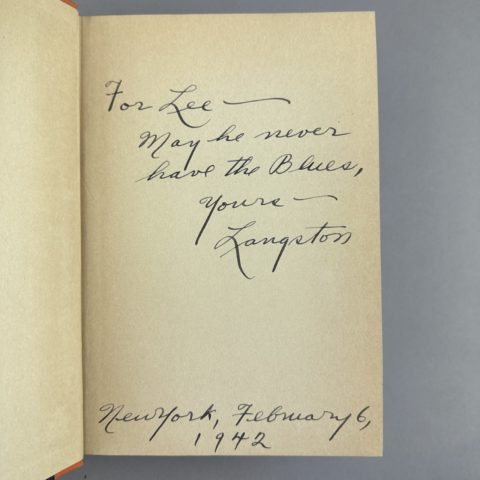 For Lee —
May he never
have the Blues,
Yours —
Langston
New York, February 6,
1942